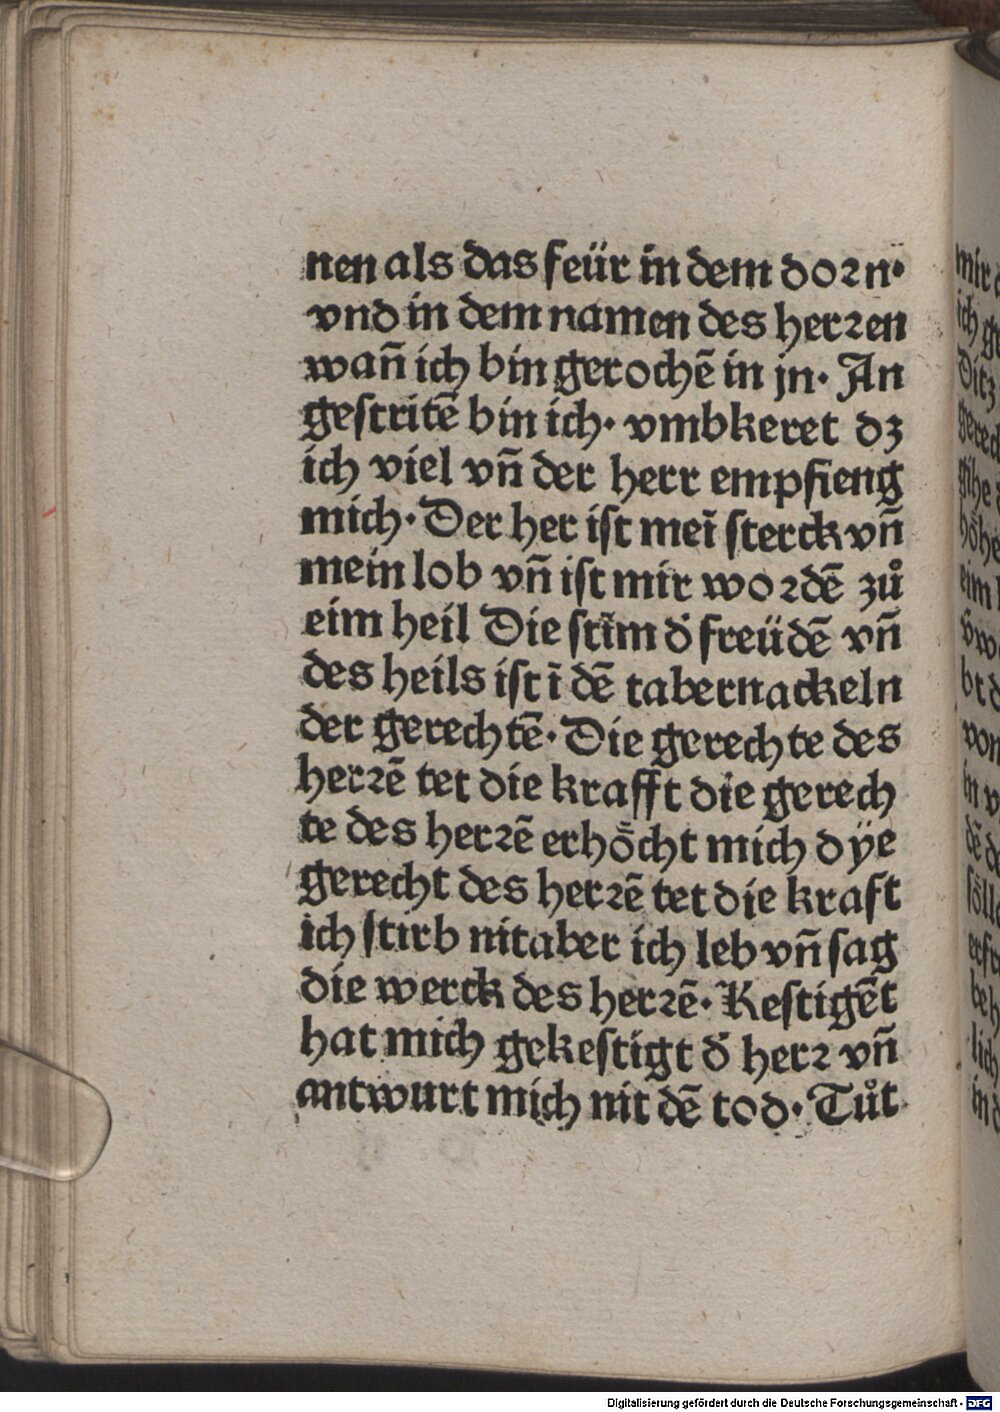 nen als das feür in dem dorn·
vnd in dem namen des herren
wan̄ ich bin gerochē in jn· An
gestritē bin ich· vmbkeret dz
ich viel vn̄ der herr empfieng
mich· Der her ist mei̅ sterck vn̄
mein lob vn̄ ist mir wordē zů
eim heil Die sti̅m d̓ freüdē vn̄
des heils ist i̅ dē tabernackeln
der gerechtē· Die gerechte des
herrē tet die krafft die gerech
te des herrē erhoͤcht mich dÿe
gerecht des herrē tet die kraft
ich stirb nit aber ich leb vn̄ sag
die werck des herrē· Kestigēt
hat mich gekestigt d̓ herr vn̄
antwurt mich nit dē tod· Tůt
mir
ich
Ditz
Digitalisierung gefördert durch die Deutsche Forschungsgemeinschaft - DFG